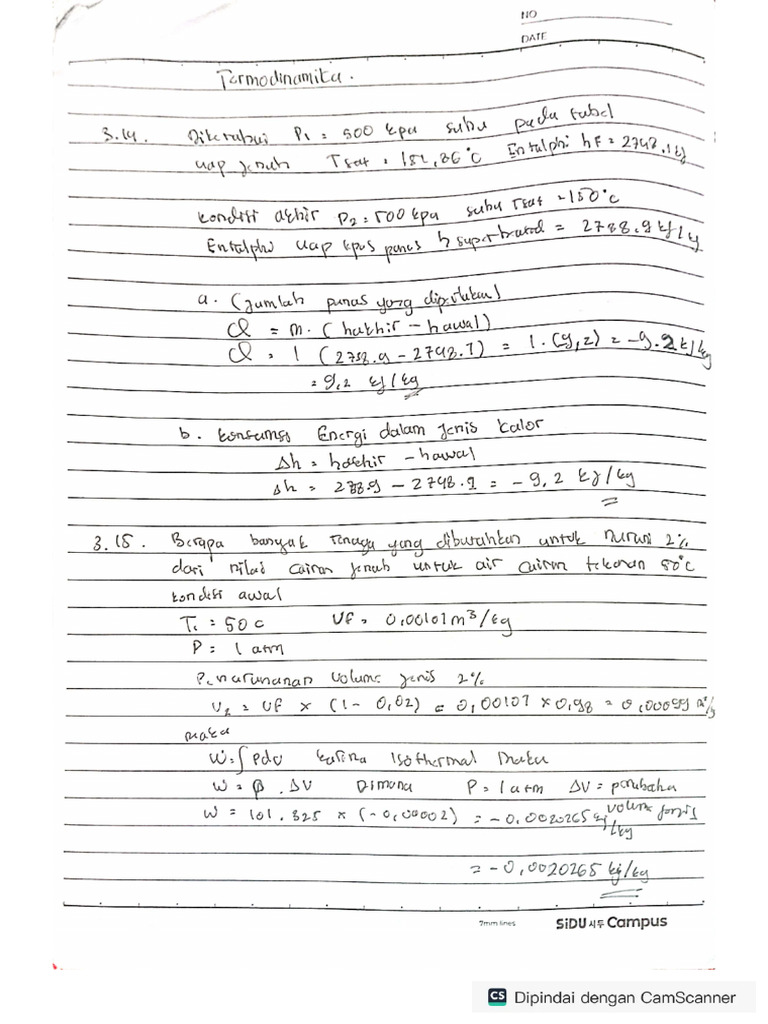 NO
DATE
Termodinamika.
3.14. Diketahui P1 = 500 kpa suhu pada tabel
uap jenuh Tsat = 151,86°C Entalphi hF = 2748.1 kj
kondisi akhir P2 = 500 kpa suhu Tsat = 150°C
Entalphi uap panas h superheated = 2788.9 kj/kg
a. (jumlah panas yang diperlukan)
Q = m. (hakhir - hawal)
Q = 1 (2738.9 - 2748.1) = 1. (9,2) = -9.2 kj/kg
= 9,2 kj/kg
b. konsumsi Energi dalam jenis kalor
Δh = hakhir - hawal
Δh = 2738.9 - 2748.1 = - 9,2 kj/kg
3.15. Berapa banyak tenaga yang dibutuhkan untuk turun 2%
dari nilai cairan jenuh untuk air cairan tekanan 50°C
kondisi awal
T1 = 50 c VF = 0,00101 m³/kg
P = 1 atm
Penurunan volume jenis 2%
V2 = VF x (1 - 0,02) = 0,00101 x 0,98 = 0,00099
maka
W = ∫ Pdv karena Isothermal maka
W = P . ΔV Dimana P = 1 atm ΔV = perubahan
volume jenis
W = 101.325 x (-0,00002) = -0,0020265 kj/kg
= -0,0020265 kj/kg
7mm lines SiDU 시두 Campus
CS Dipindai dengan CamScanner